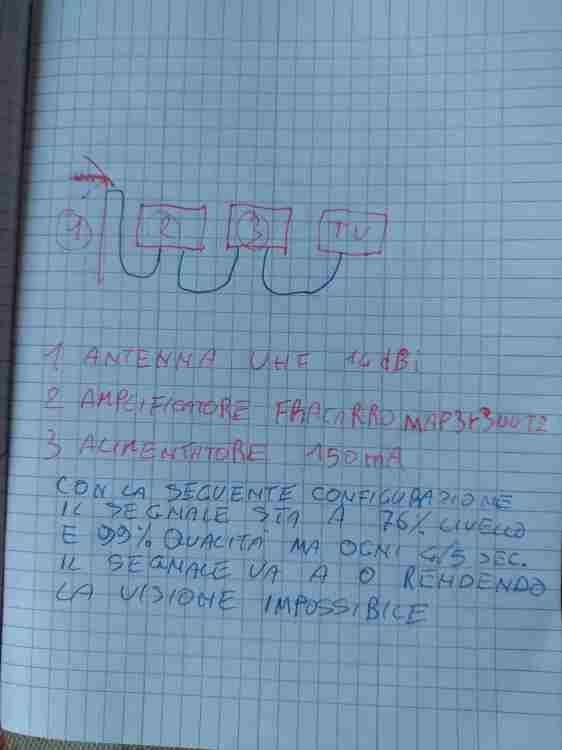 1 2 3 TV
1 ANTENNA UHF 14 dBi
2 AMPLIFICATORE FRACARRO MAP3r3UUT2
3 ALIMENTATORE 150mA
CON LA SEGUENTE CONFIGURAZIONE
IL SEGNALE STA A 76% LIVELLO
E 99% QUALITA MA OGNI 4/5 SEC.
IL SEGNALE VA A 0 RENDENDO
LA VISIONE IMPOSSIBILE